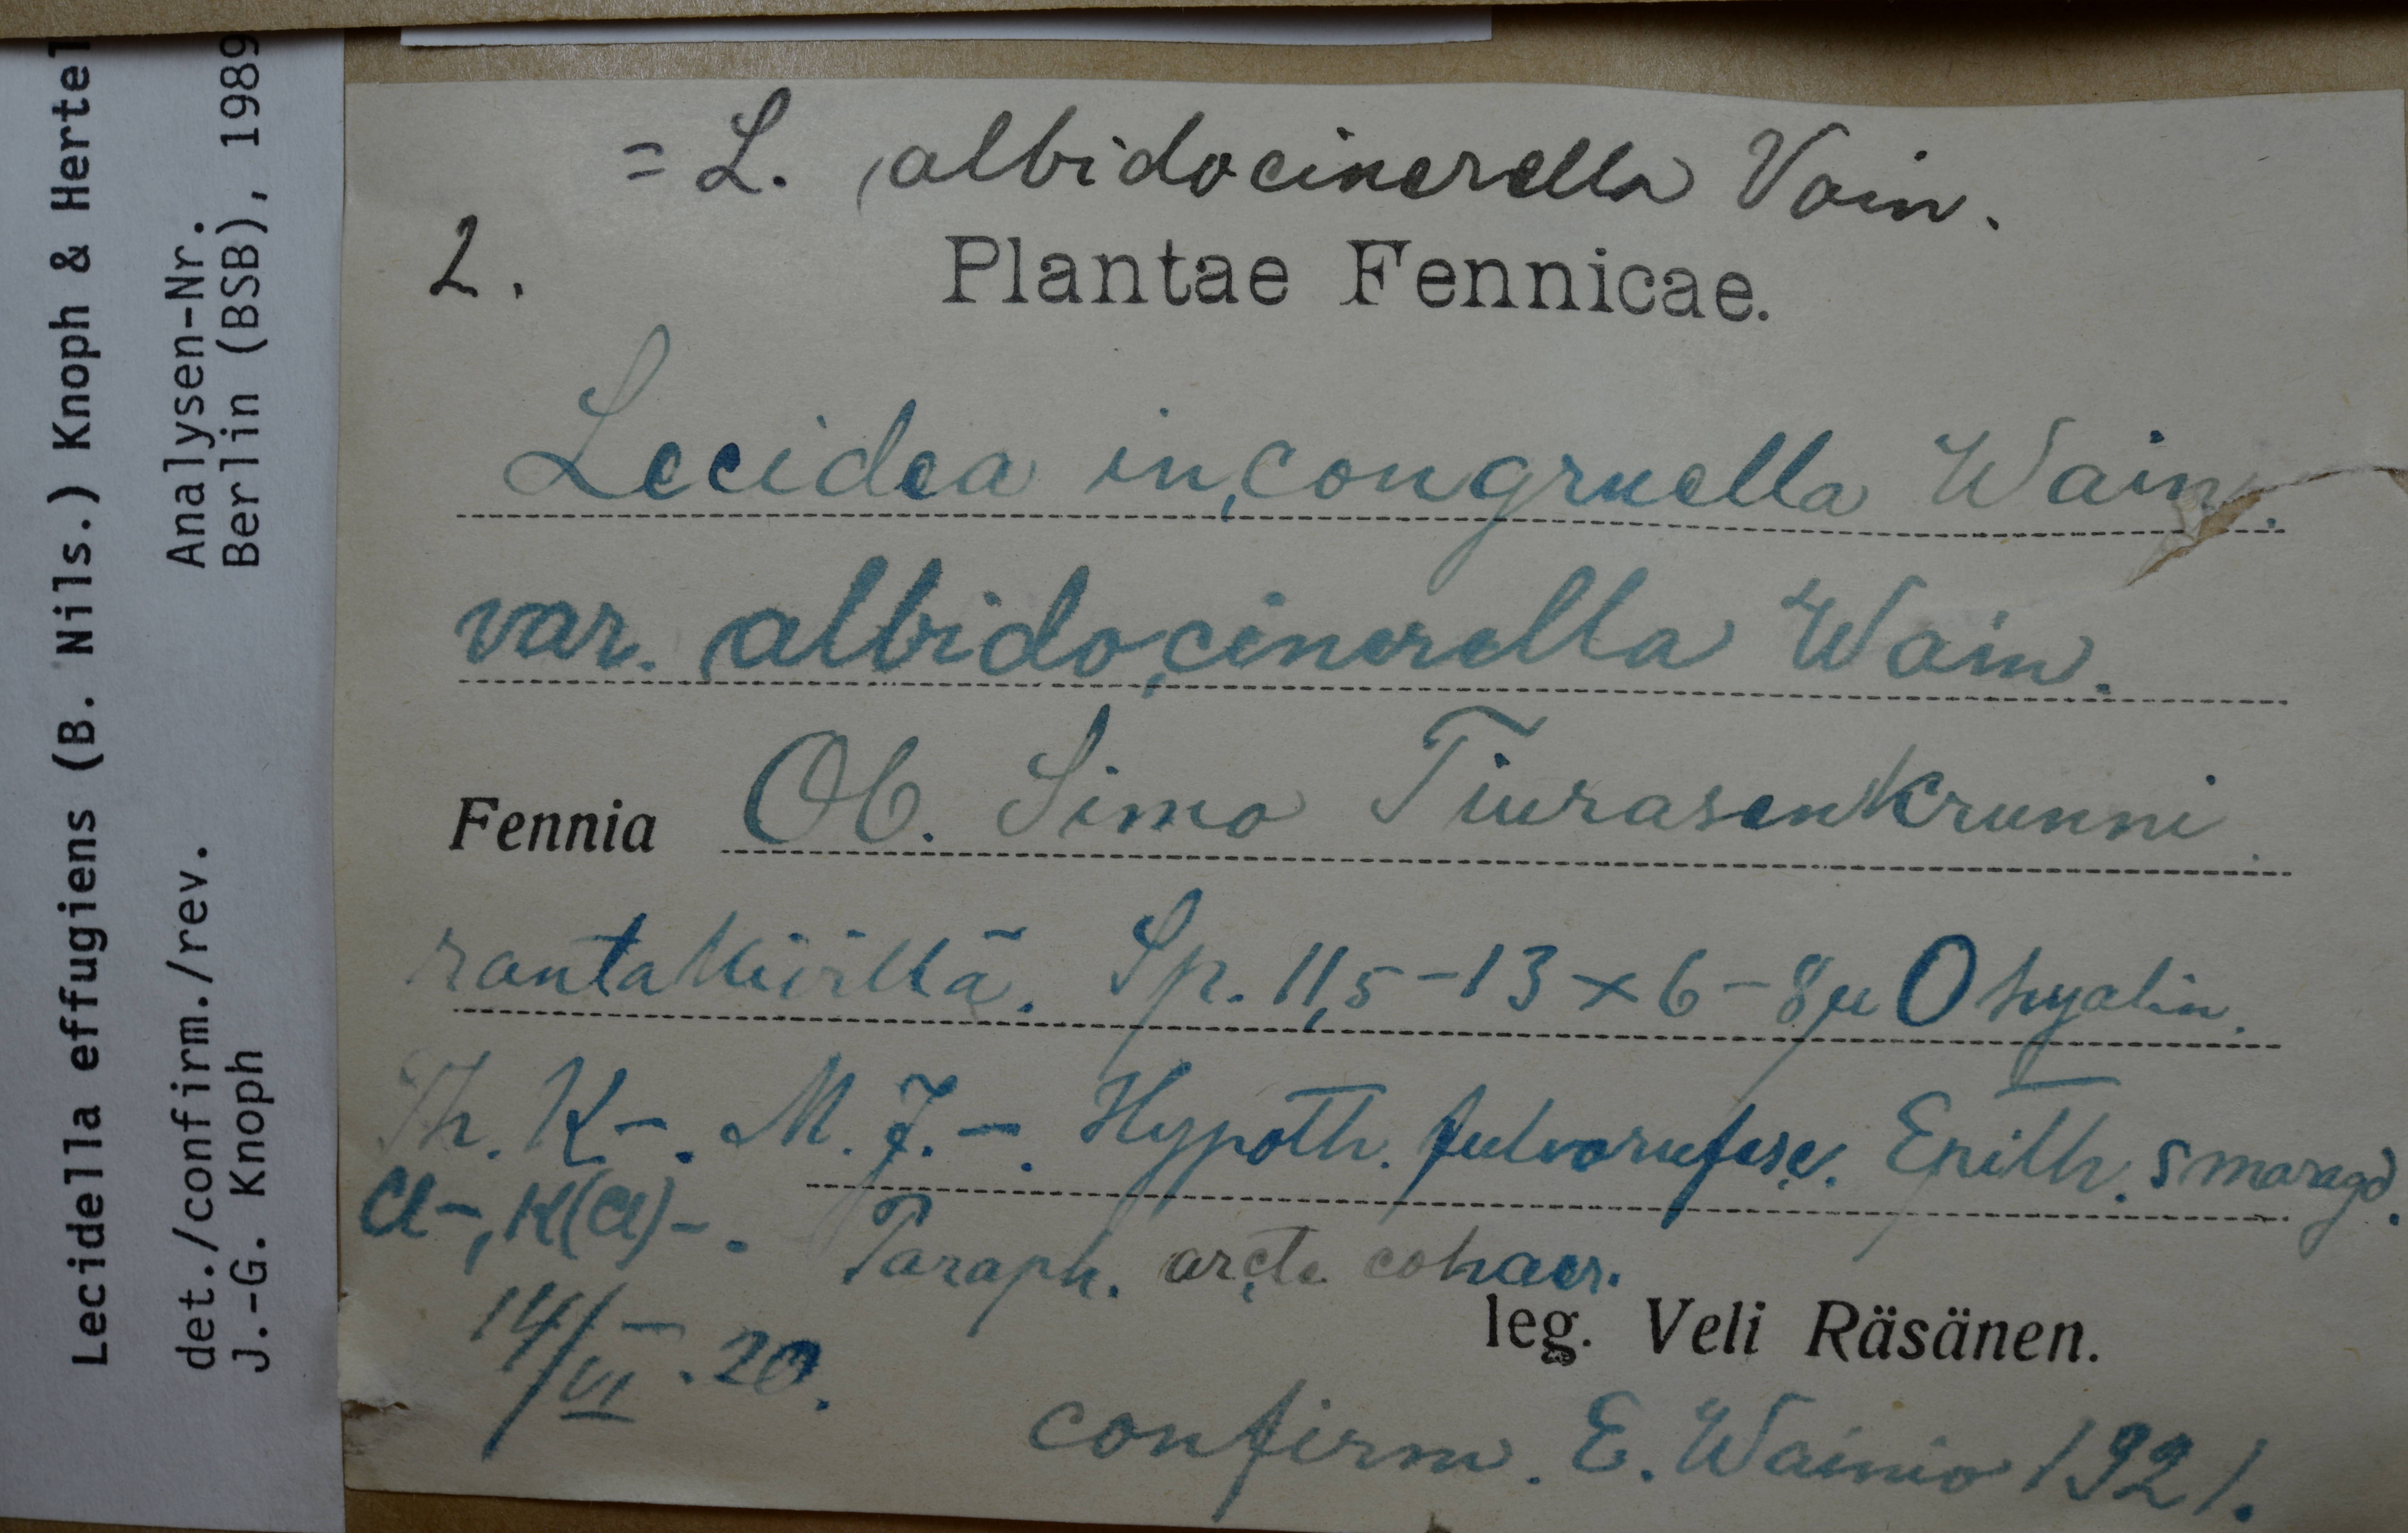 = L. albidocinerella Vain.
2.
Plantae Fennicae.
Lecidea incongruella Wain.
var. albidocinerella Wain.
Fennia Ob. Simo Tiurasenkrunni
rantakiviltä. Sp. 11,5-13 x 6-8 µ O hyalin.
Th. K-. M. J.-. Hypoth. fulvorufesc. Epith. smaragd.
Cl-, K(Cl)-. Paraph. arcte cohaer.
leg. Veli Räsänen.
14/VI.20.
confirm. E. Wainio 1921.
Lecidella effugiens (B. Nils.) Knoph & Hertel
det./confirm./rev. Analysen-Nr.
J.-G. Knoph Berlin (BSB), 1989